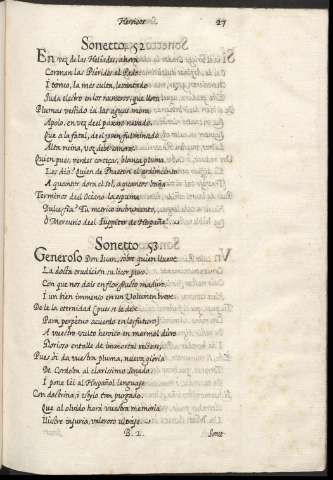 Heroicos 27
Sonetto. 52
En vez de las Heliades, ahora
Coronan las Piérides al Pado
I tronco, la mas culta, levantado
Suda electro en los numeros, que llora.
Plumas vestido ia las aguas mora
Apolo, en vez del paxaro nevado,
Que a la fatal, del joven fulminado
Alta ruina, voz debe canora.
Quien pues, verdes cortezas, blanca pluma
Les dio? Quien de Phaeton el ardimiento
A quantos dora el Sol, a quantos baña
Terminos del Oceano la espuma
Dulce fia? Tu metrico instrumento,
O Mercurio del Iuppiter de España.
Sonetto. 53
Generoso Don Iuan, sobre quien llueve
La docta erudicion su licor puro,
Con que nos dais en flor fruto maduro,
I un bien immenso en un volumen breve
Dele la eternidad, pues se le debe
Para perpetuo acuerdo en lo futuro
A vuestro vulto heroico en marmol duro
Glorioso entalle de immortal relieve,
Pues oi da vuestra pluma nueva gloria
De Cordoba al clarissimo Senado,
I pone lei al Español lenguage
Con doctrina i estylo tan purgado,
Que al olvido hará vuestra memoria
Illustre injuria, valeroso ultrage.
B. 2. Sonet